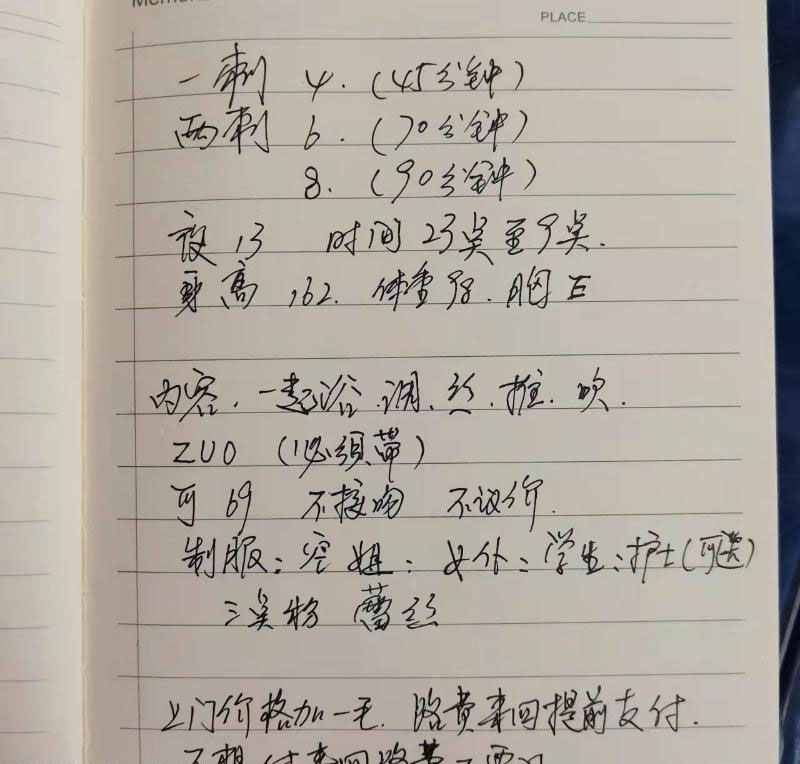 PLACE
一刺 4.（45分钟）
两刺 6.（70分钟）
8.（90分钟）
夜13 时间23点至9点.
身高162. 体重98. 胸E
内容. 一起浴.调.丝.推.吹.
ZUO（必须带）
可69 不接吻 不议价.
制服：空姐：女仆：学生：护士（可选）
三点粉 蕾丝
上门价格加一毛. 路费来回提前支付.
不想付来回路费